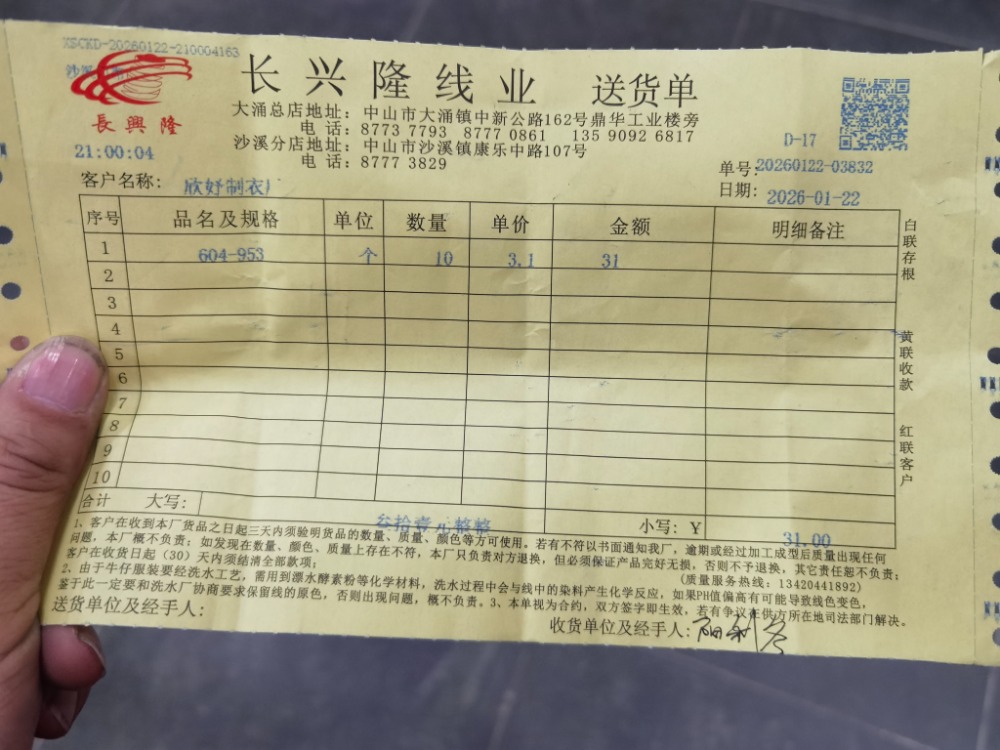 XSCKD-20260122-210004163
沙溪
長興隆
长兴隆线业 送货单
大涌总店地址：中山市大涌镇中新公路162号鼎华工业楼旁
电话：8773 7793 8777 0861 135 9092 6817
沙溪分店地址：中山市沙溪镇康乐中路107号
电话：8777 3829
21:00:04
D-17
单号:20260122-03832
客户名称：欣妤制衣厂
日期：2026-01-22
序号 品名及规格 单位 数量 单价 金额 明细备注
1 604-953 个 10 3.1 31
2
3
4
5
6
7
8
9
10
合计 大写： 叁拾壹元整整 小写：Y 31.00
白联存根
黄联收款
红联客户
1、客户在收到本厂货品之日起三天内须验明货品的数量、质量、颜色等方可使用。若有不符以书面通知我厂，逾期或经过加工成型后质量出现任何
问题，本厂概不负责；如发现在数量、颜色、质量上存在不符，本厂只负责对方退换，但必须保证产品完好无损，否则不予退换，其它责任恕不负责；
客户在收货日起（30）天内须结清全部款项；
(质量服务热线：13420441892)
2、由于牛仔服装要经洗水工艺，需用到漂水酵素粉等化学材料，洗水过程中会与线中的染料产生化学反应，如果PH值偏高有可能导致线色变色，
鉴于此一定要和洗水厂协商要求保留线的原色，否则出现问题，概不负责。3、本单视为合约，双方签字即生效，若有争议在供方所在地司法部门解决。
送货单位及经手人：
收货单位及经手人：